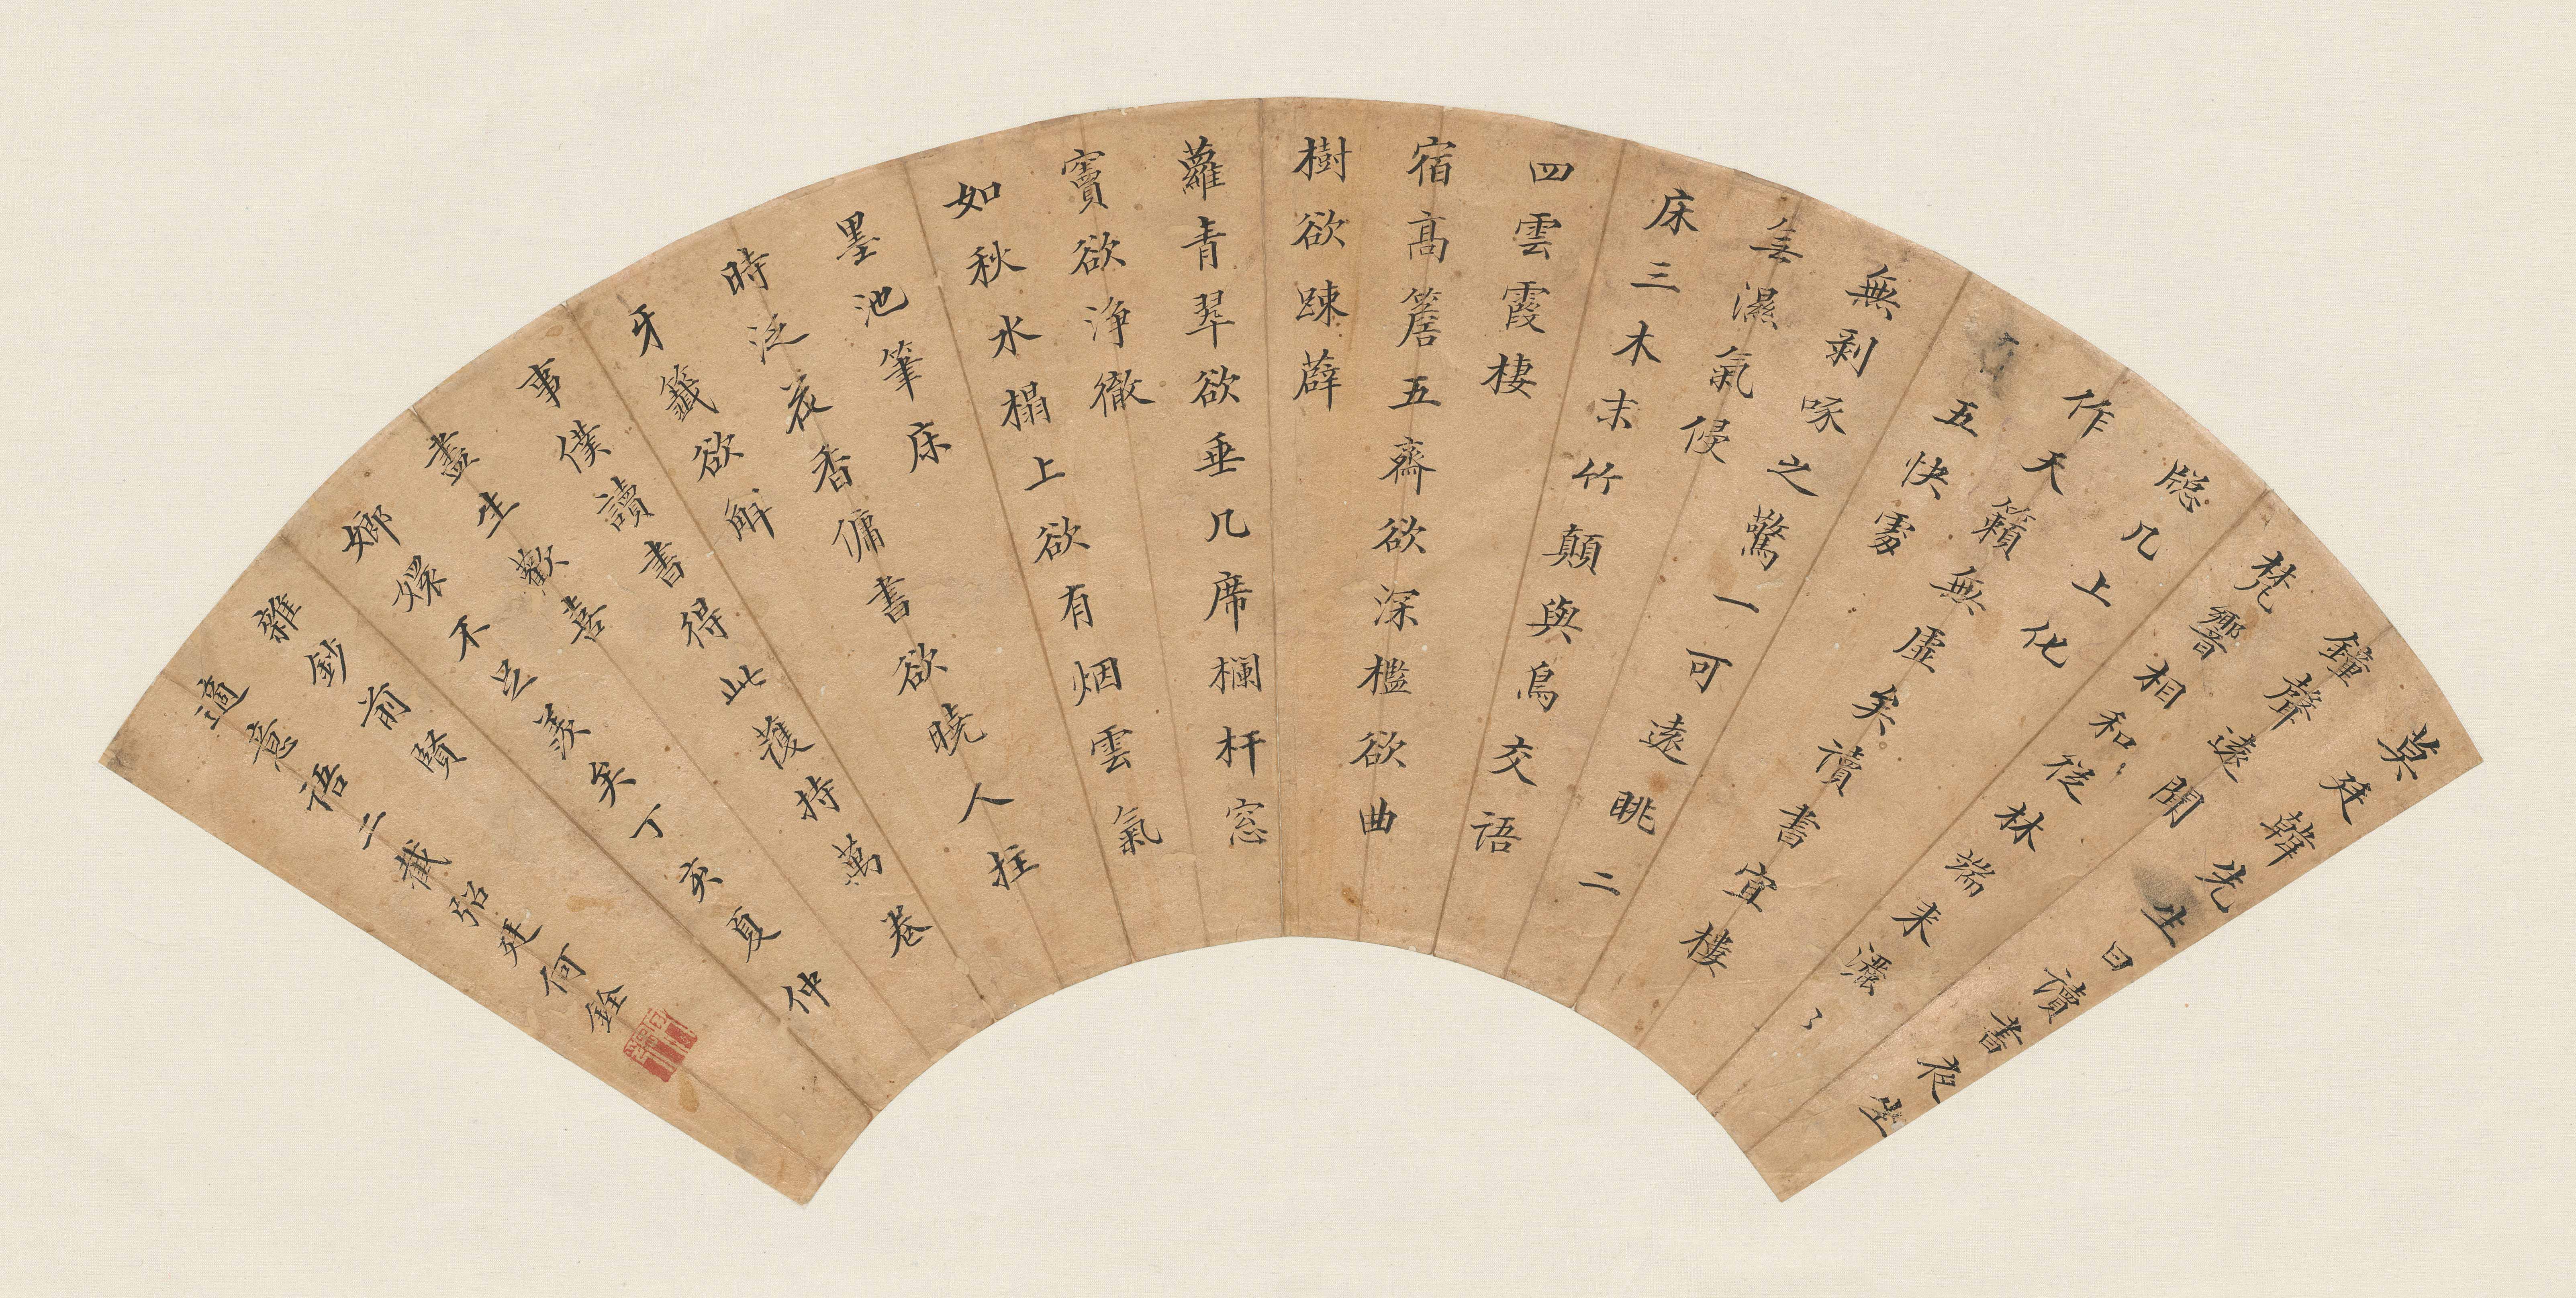 莫廷韓先生曰讀書夜坐
鐘聲遠聞
梵響相和從林端来灑〻
牕几上化
作天籟無虛矣讀書宜樓
五快處
無剥啄之驚一可遠眺二
濕氣侵
床三木末竹顛與鳥交語
四雲霞棲
宿高簷五齋欲深檻欲曲
樹欲踈薜
蘿青翠欲垂几席欄杆窓
竇欲淨徹
如秋水榻上欲有烟雲氣
墨池筆床
時泛花香傭書欲曉人拄
牙籤欲解
事僕讀書得此護持萬卷
盡生歡喜
嫏嬛不足羨矣丁亥夏仲
雜鈔前賢
適意語二截廷何銓